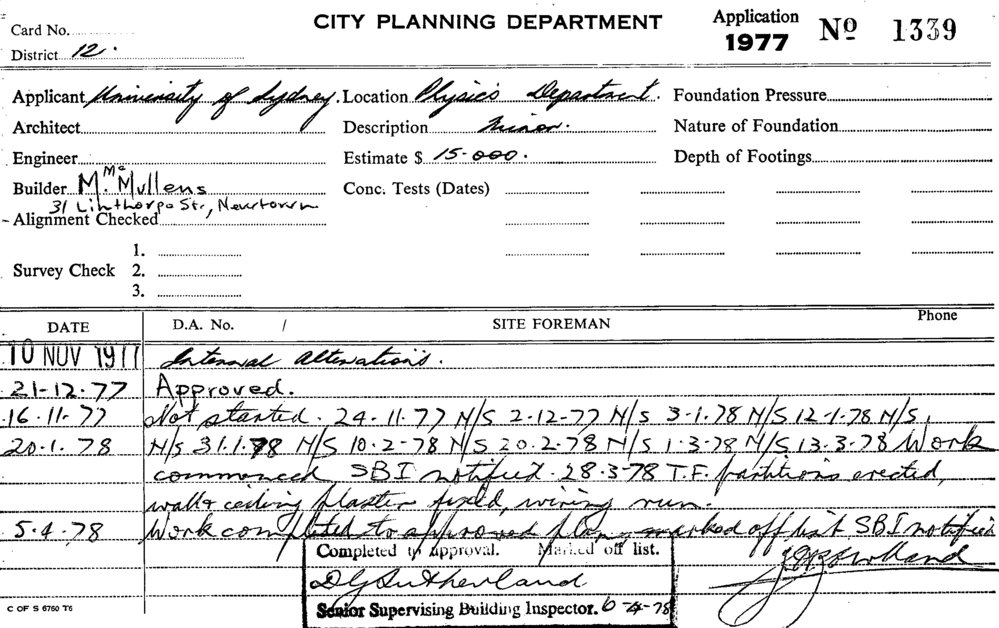 CITY PLANNING DEPARTMENT
Application 1977 Nº 1339
Card No.
District 12.
Applicant University of Sydney. Location Physics Department. Foundation Pressure
Architect Description Minor. Nature of Foundation
Engineer Estimate $ 15-000. Depth of Footings
Builder M. McMullens Conc. Tests (Dates)
31 Linthorpe Str., Newtown
Alignment Checked
1.
Survey Check 2.
3.
DATE D.A. No. / SITE FOREMAN Phone
10 NOV 1977 Internal Alterations.
21-12-77 Approved.
16-11-77 Not started. 24-11-77 N/S 2-12-77 N/S 3-1-78 N/S 12-1-78 N/S,
20.1.78 N/S 31.1.78 N/S 10-2-78 N/S 20-2-78 N/S 1-3-78 N/S 13-3-78 Work
commenced, SBI notified. 28-3-78 T.F. partitions erected,
wall & ceiling plaster fixed, wiring run.
5-4-78 Work completed to approved plan, marked off list SBI notified
Completed to approval. Marked off list.
DG Sutherland
Senior Supervising Building Inspector. 6-4-78
C OF S 6760 T6